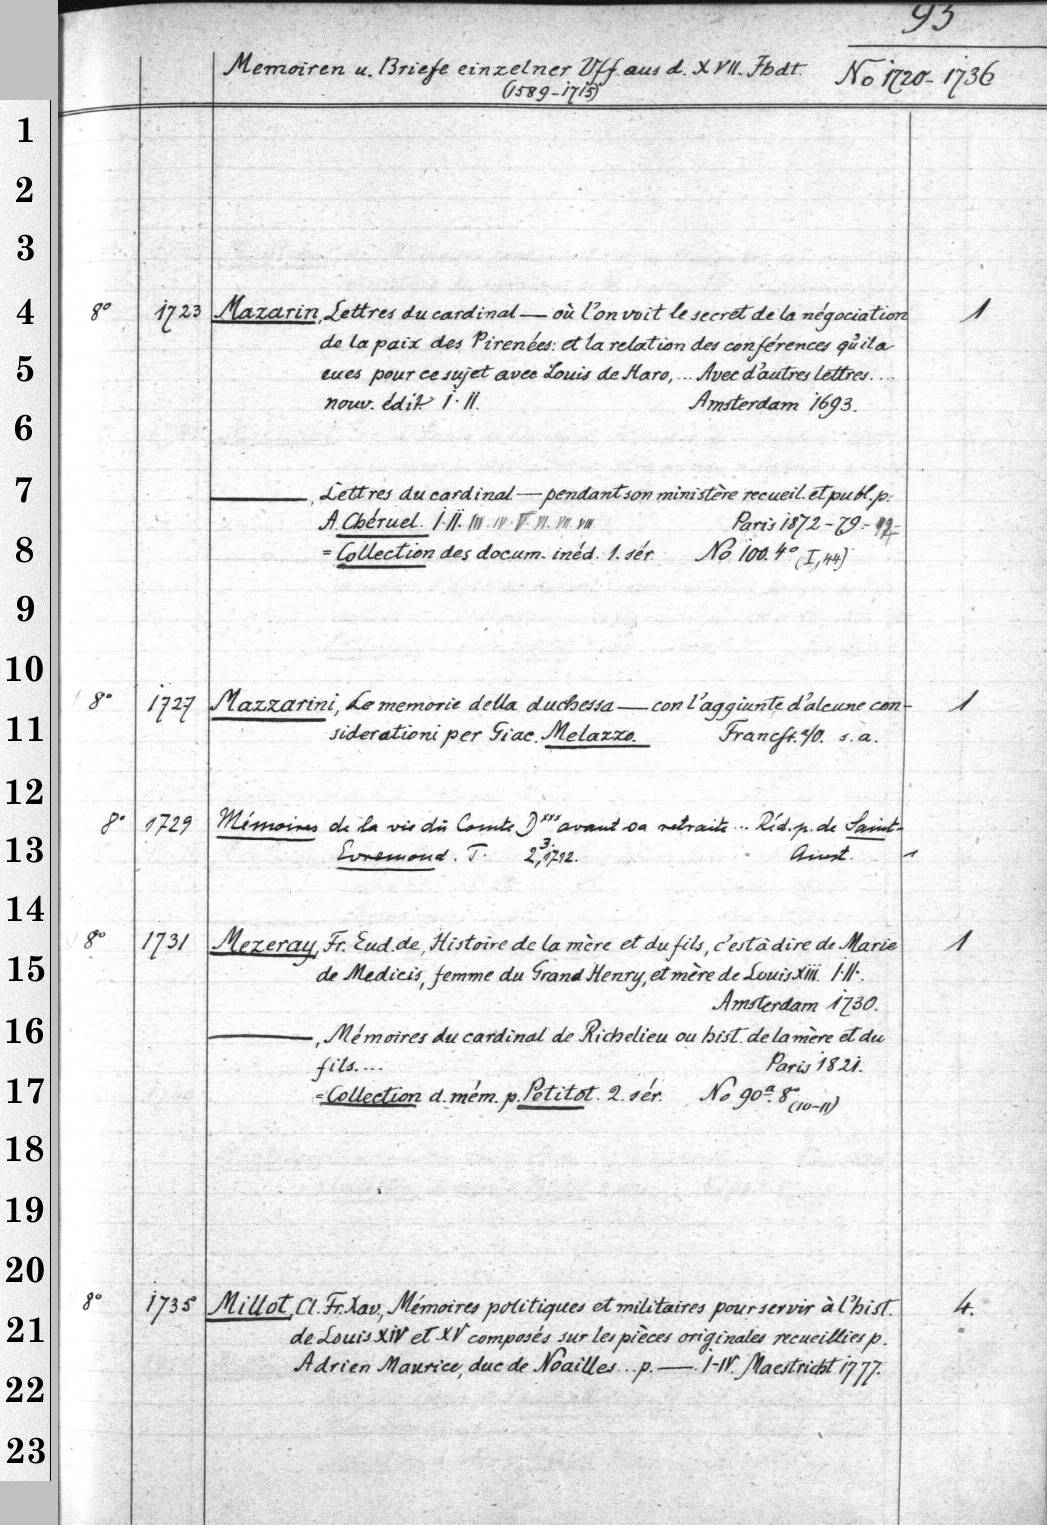 93
Memoiren u. Briefe einzelner Vff. aus d. XVII. Jhdt. No 1720-1736
(1589-1715)
1
2
3
4 8° 1723 Mazarin, Lettres du cardinal — où l'on voit le secret de la négociation 1
de la paix des Pirenées: et la relation des conférences qu'il a
5 eues pour ce sujet avec Louis de Haro, ... Avec d'autres lettres....
nouv. édit. I. II. Amsterdam 1693.
6
7 ———, Lettres du cardinal — pendant son ministère recueil. et publ. p.
A. Chéruel. I. II. III. IV. V. VI. VII. VIII Paris 1872-79.-
8 = Collection des docum. inéd. 1. sér. No 100. 4° (I, 44)
9
10
8° 1727 Mazzarini, Le memorie della duchessa — con l'aggiunte d'alcune con- 1
11 siderationi per Giac. Melazzo. Francft. a/O. s. a.
12
8° 1729 Mémoires de la vie du Comte D*** avant sa retraite ... Réd. p. de Saint-
13 Evremond. T. 2,3. 1792. Amst. 1
14
8° 1731 Mezeray, Fr. Eud. de, Histoire de la mère et du fils, c'est à dire de Marie 1
15 de Medicis, femme du Grand Henry, et mère de Louis XIII. I. II.
Amsterdam 1730.
16 ———, Mémoires du cardinal de Richelieu ou hist. de la mère et du
fils.... Paris 1821.
17 = Collection d. mém. p. Petitot. 2. sér. No 90a. 8° (10-11)
18
19
20
8° 1735 Millot, Cl. Fr. Xav., Mémoires politiques et militaires pour servir à l'hist. 4.
21 de Louis XIV et XV composés sur les pièces originales recueillies p.
Adrien Maurice, duc de Noailles ... p. — . I-IV. Maestricht 1777.
22
23